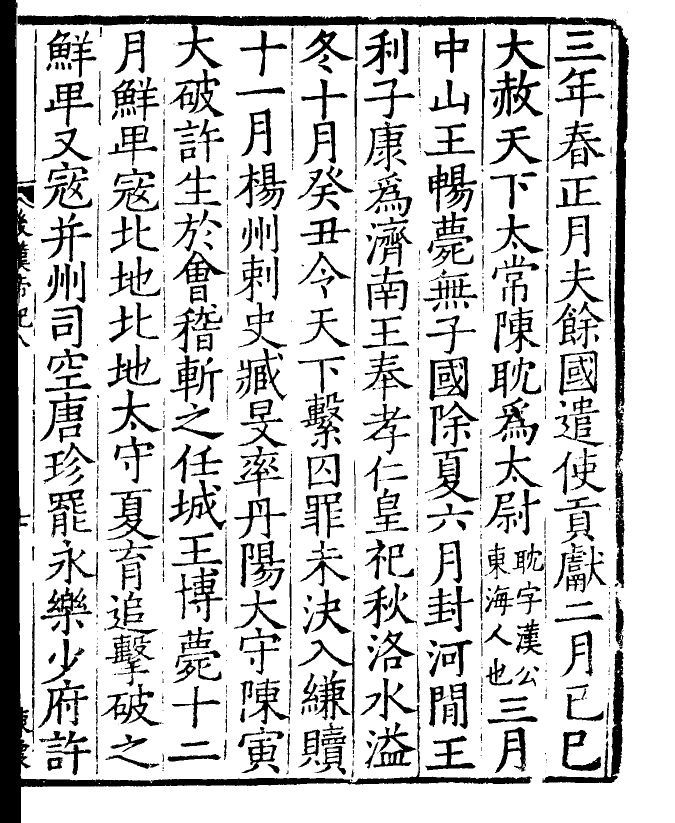 三年春正月夫餘國遣使貢獻二月已巳
大赦天下太常陳耽爲太尉耽字漢公東海人也三月
中山王暢薨無子國除夏六月封河間王
利子康爲濟南王奉孝仁皇祀秋洛水溢
冬十月癸丑令天下繫囚罪未決入縑贖
十一月楊州刺史臧旻率丹陽大守陳寅
大破許生於會稽斬之任城王博薨十二
月鮮卑寇北地北地太守夏育追擊破之
鮮卑又寇并州司空唐珍罷永樂少府許
後漢帝紀八